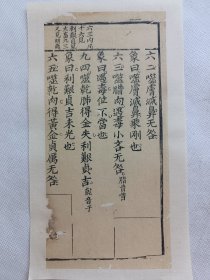 六二噬膚滅鼻无咎
象曰噬膚滅鼻乘剛也
六三噬腊肉遇毒小吝无咎腊音昔
象曰遇毒位不當也
九四噬乾胏得金矢利艱貞吉胏音子
象曰利艱貞吉未光也
六五噬乾肉得黃金貞厲无咎